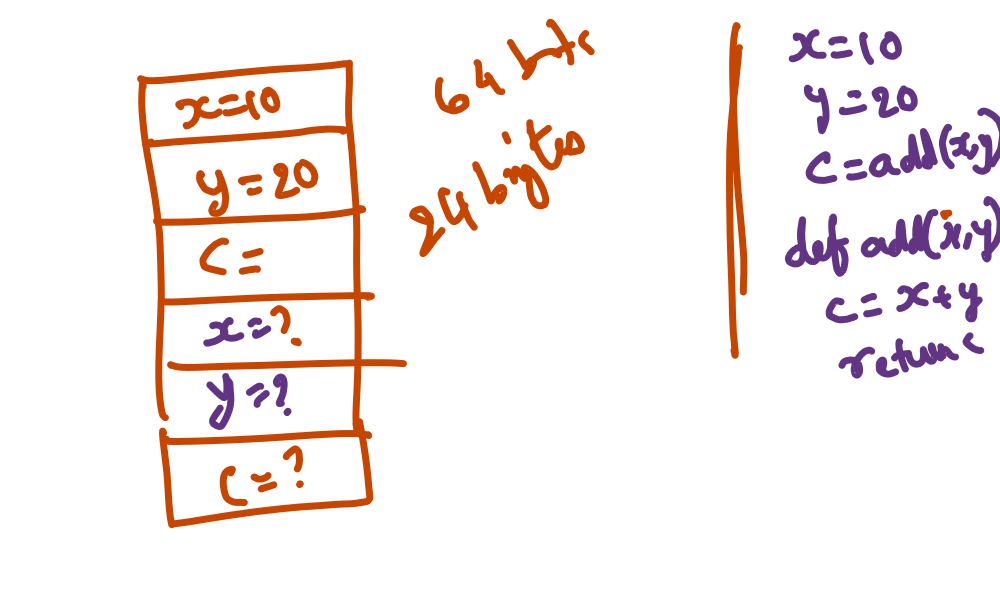 x=10
y=20
C=
x=?
y=?
C=?
64 bits
24 bytes
x=10
y=20
C=add(x,y)
def add(x,y)
C=x+y
return c